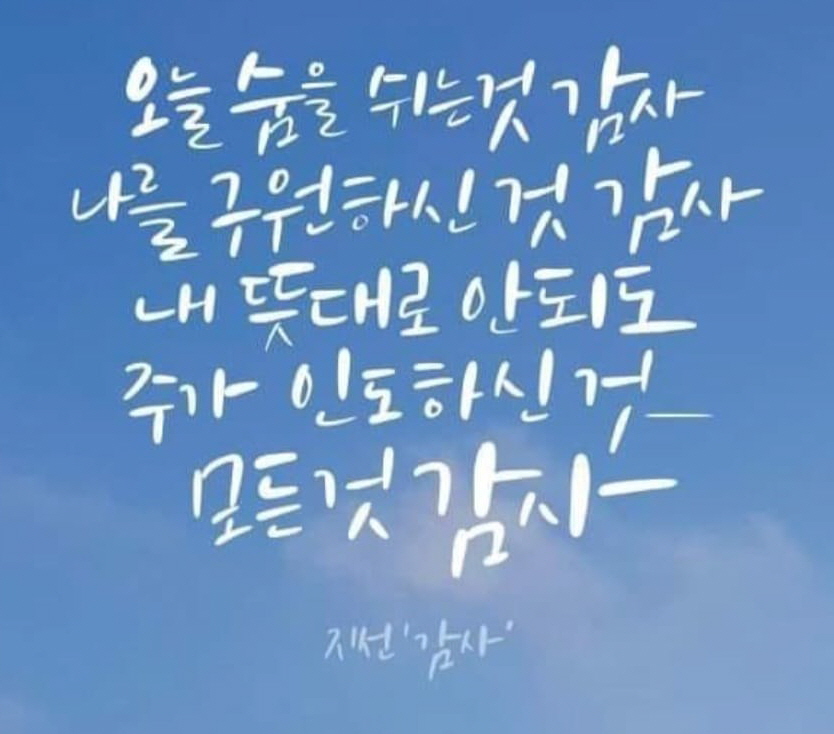 오늘 숨을 쉬는것 감사
나를 구원하신 것 감사
내 뜻대로 안되도
주가 인도하신 것
모든것 감사
지선 '감사'